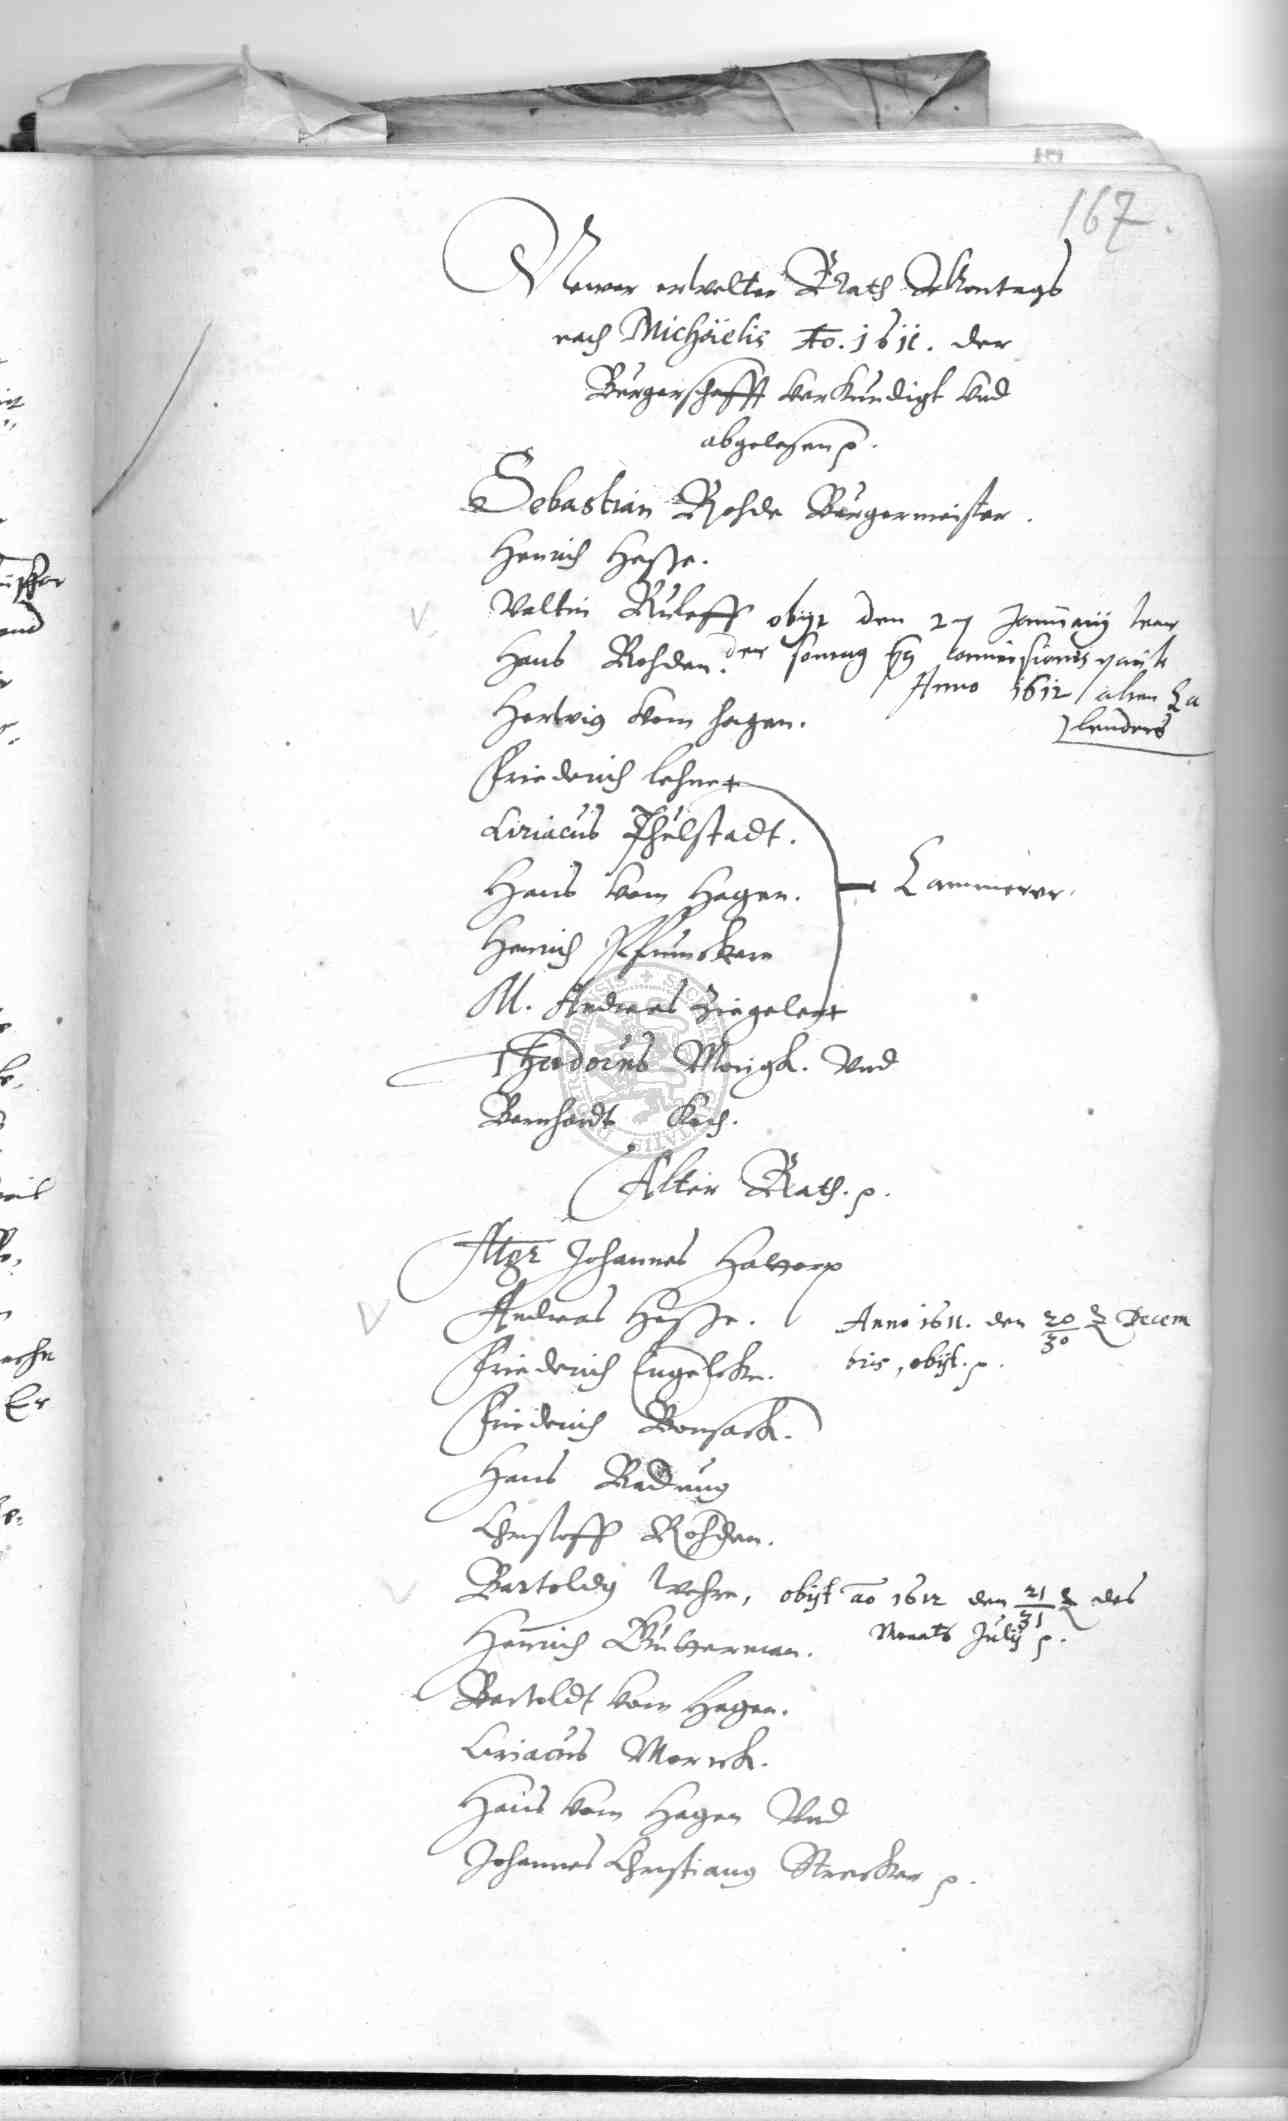 167.
Newer erwelter Rath Montags
nach Michaëlis Ao. 1611. der
Burgerschafft verkundigt vnd
abgelesen p.
Sebastian Rohde Burgermeister.
Henrich Hesse.
Valtin Ruleff obijt den 27 Januarij war
Hans Rohden. der
Anno 1612 alten Ca
lenders
Hertwig vom Hagen.
Friederich Lehne
Ciriacus Thulstadt.
Hans vom Hagen.
Cammerer.
Henrich
M. Andreas Ziegeler
Thodorus Monigk. Vnd
Bernhardt Koch.
Alter Rath. p.
Johannes
Andreas Hesse. Anno 1611. den 20/30 Decem
bris, obijt. p.
Friederich Engelke.
Friederich Bonsack.
Hans Badung
Christoff Rohden.
Bartoldg Wehre, obijt ao 1612 den 21/31 des
Monats Julij p.
Heinrich Gutterman.
Bertoldt vom Hagen.
Ciriacus Morick.
Hans vom Hagen Vnd
Johannes Christiang Strecker p.